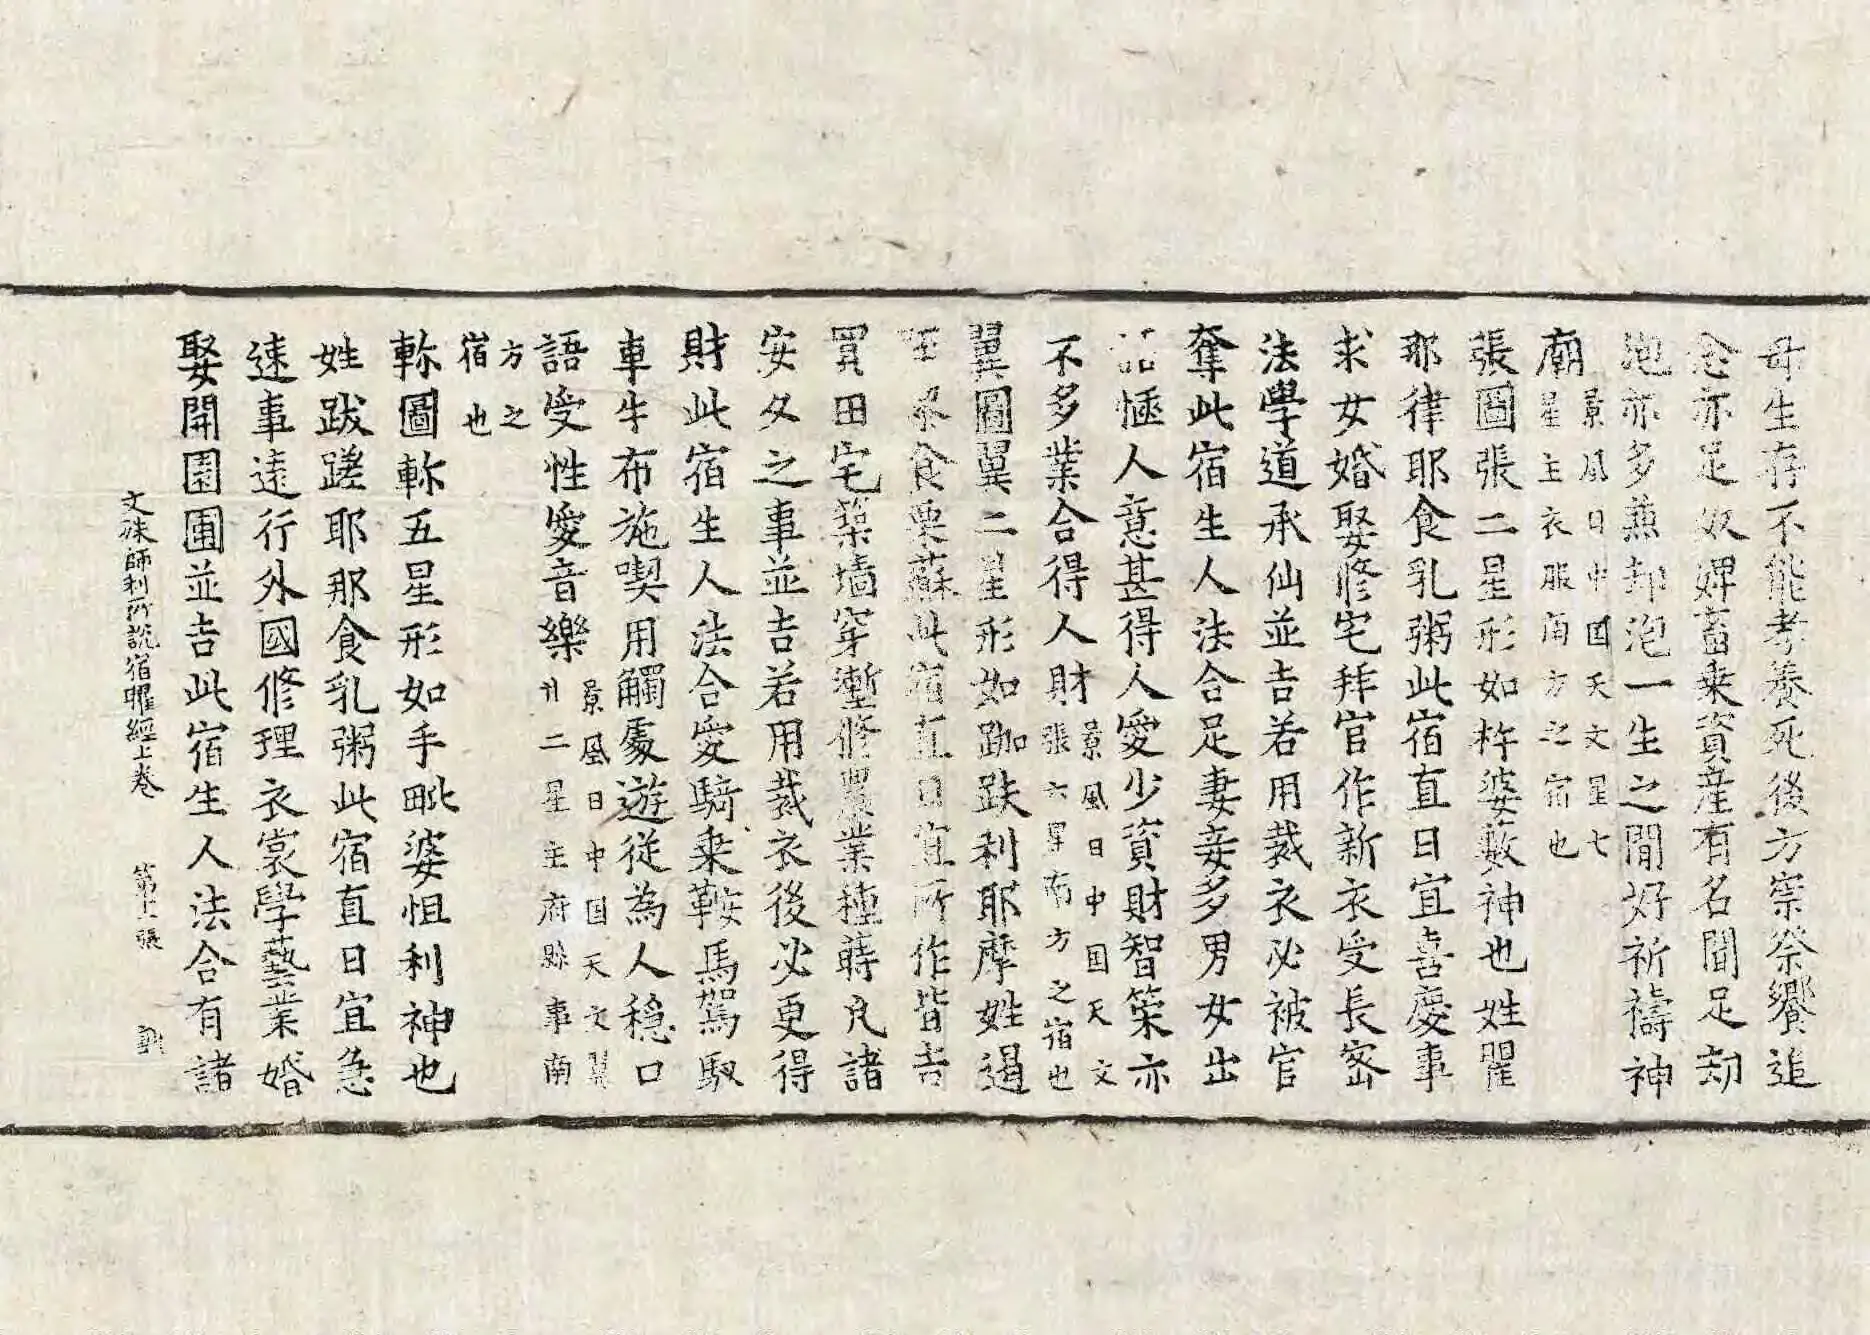 母生存不能孝養死後方崇祭饗追
念亦足奴婢畜乗資産有名聞足劫
泡亦多燕却泡一生之間好祈禱神
廟景風曰中国天文星七
星主衣服南方之宿也
張圖張二星形如杵婆藪神也姓瞿
那律耶食乳粥此宿直日宜喜慶事
求女婚娶修宅拜官作新衣受長密
法學道承仙並吉若用裁衣必被官
奪此宿生人法合足妻妾多男女出
語愜人意甚得人愛少資財智策亦
不多業合得人財景風曰中国天文
張六星南方之宿也
翼圖翼二星形如跏趺利耶摩姓遏
吒黎食栗蘇此宿直日宜所作皆吉
買田宅築墻穿壍修農業種蒔凡諸
安久之事並吉若用裁衣後必更得
財此宿生人法合愛騎乗鞍馬駕馭
車牛布施喫用觸處遊從為人穏口
語受性愛音樂景風曰中国天文翼
廿二星主府縣事南
方之
宿也
軫圖軫五星形如手毗婆怚利神也
姓跋蹉耶那食乳粥此宿直日宜急
速事遠行外國修理衣裳學藝業婚
娶開園圃並吉此宿生人法合有諸
文殊師利所説宿曜經上卷 第十一張